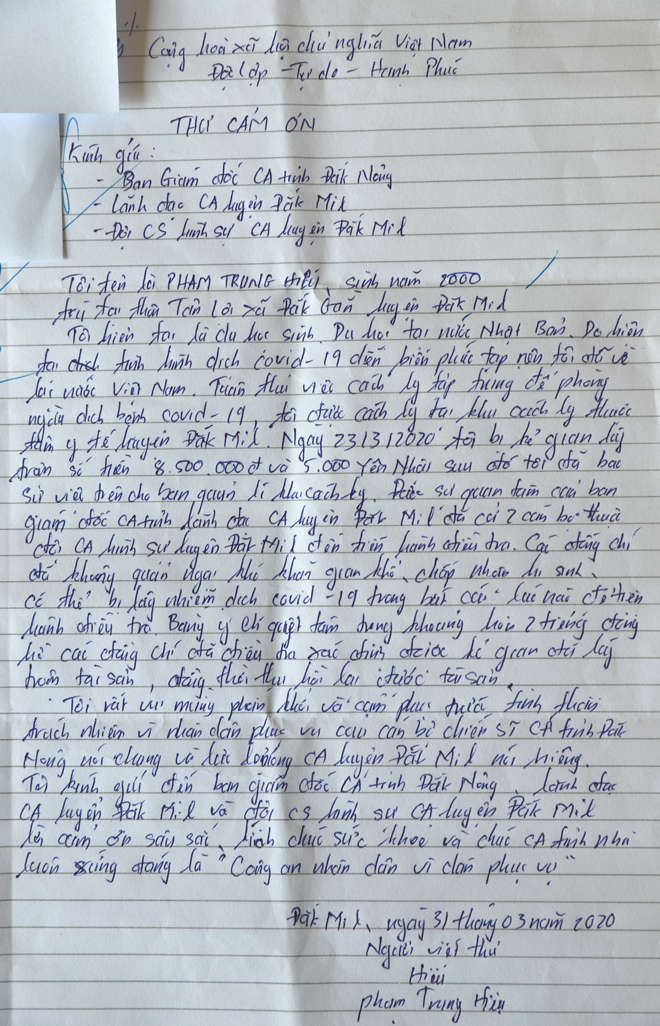 Cộng hoà xã hội chủ nghĩa Việt Nam
Độc lập - Tự do - Hạnh Phúc
THƯ CẢM ƠN
Kính gửi :
- Ban Giám đốc CA tỉnh Đăk Nông
- Lãnh đạo CA huyện Đăk Mil
- Đội CS hình sự CA huyện Đăk Mil
Tôi tên là PHẠM TRUNG HIẾU, sinh năm 2000
trú tại thôn Tân Lợi xã Đăk Gằn huyện Đăk Mil
Tôi hiện tại là du học sinh. Du học tại nước Nhật Bản. Do hiện
tại tình hình dịch covid-19 diễn biến phức tạp nên tôi đã về
lại nước Việt Nam. Tuân thủ việc cách ly tập trung để phòng
ngừa dịch bệnh covid-19, tôi được cách ly tại khu cách ly thuộc
tâm y tế huyện Đăk Mil. Ngày 23/3/2020 tôi bị kẻ gian lấy
trộm số tiền 8.500.000đ và 5.000 Yên Nhật sau đó tôi đã báo
sự việc trên cho ban quản lí khu cách ly. Được sự quan tâm của ban
giám đốc CA tỉnh lãnh đạo CA huyện Đăk Mil đã cử 2 cán bộ thuộc
đội CA hình sự huyện Đăk Mil đến tiến hành điều tra. Các đồng chí
đã không quản ngại khó khăn gian khổ, chấp nhận hi sinh,
có thể bị lây nhiễm dịch covid-19 trong bất cứ lúc nào để tiến
hành điều tra. Bằng ý chí quyết tâm trong khoảng hơn 2 tiếng đồng
hồ các đồng chí đã điều tra xác định được kẻ gian đã lấy
trộm tài sản, đồng thời thu hồi lại được tài sản.
Tôi rất vui mừng phấn khởi và cảm phục trước tinh thần
trách nhiệm vì nhân dân phục vụ của cán bộ chiến sĩ CA tỉnh Đăk
Nông nói chung và lực lượng CA huyện Đăk Mil nói riêng.
Tôi kính gửi đến ban giám đốc CA tỉnh Đăk Nông, lãnh đạo
CA huyện Đăk Mil và đội cs hình sự CA huyện Đăk Mil
lời cảm ơn sâu sắc, kính chúc sức khoẻ và chúc CA tỉnh nhà
luôn xứng đáng là "Công an nhân dân vì dân phục vụ"
Đăk Mil, ngày 31 tháng 03 năm 2020
Người viết thư
Hiếu
Phạm Trung Hiếu